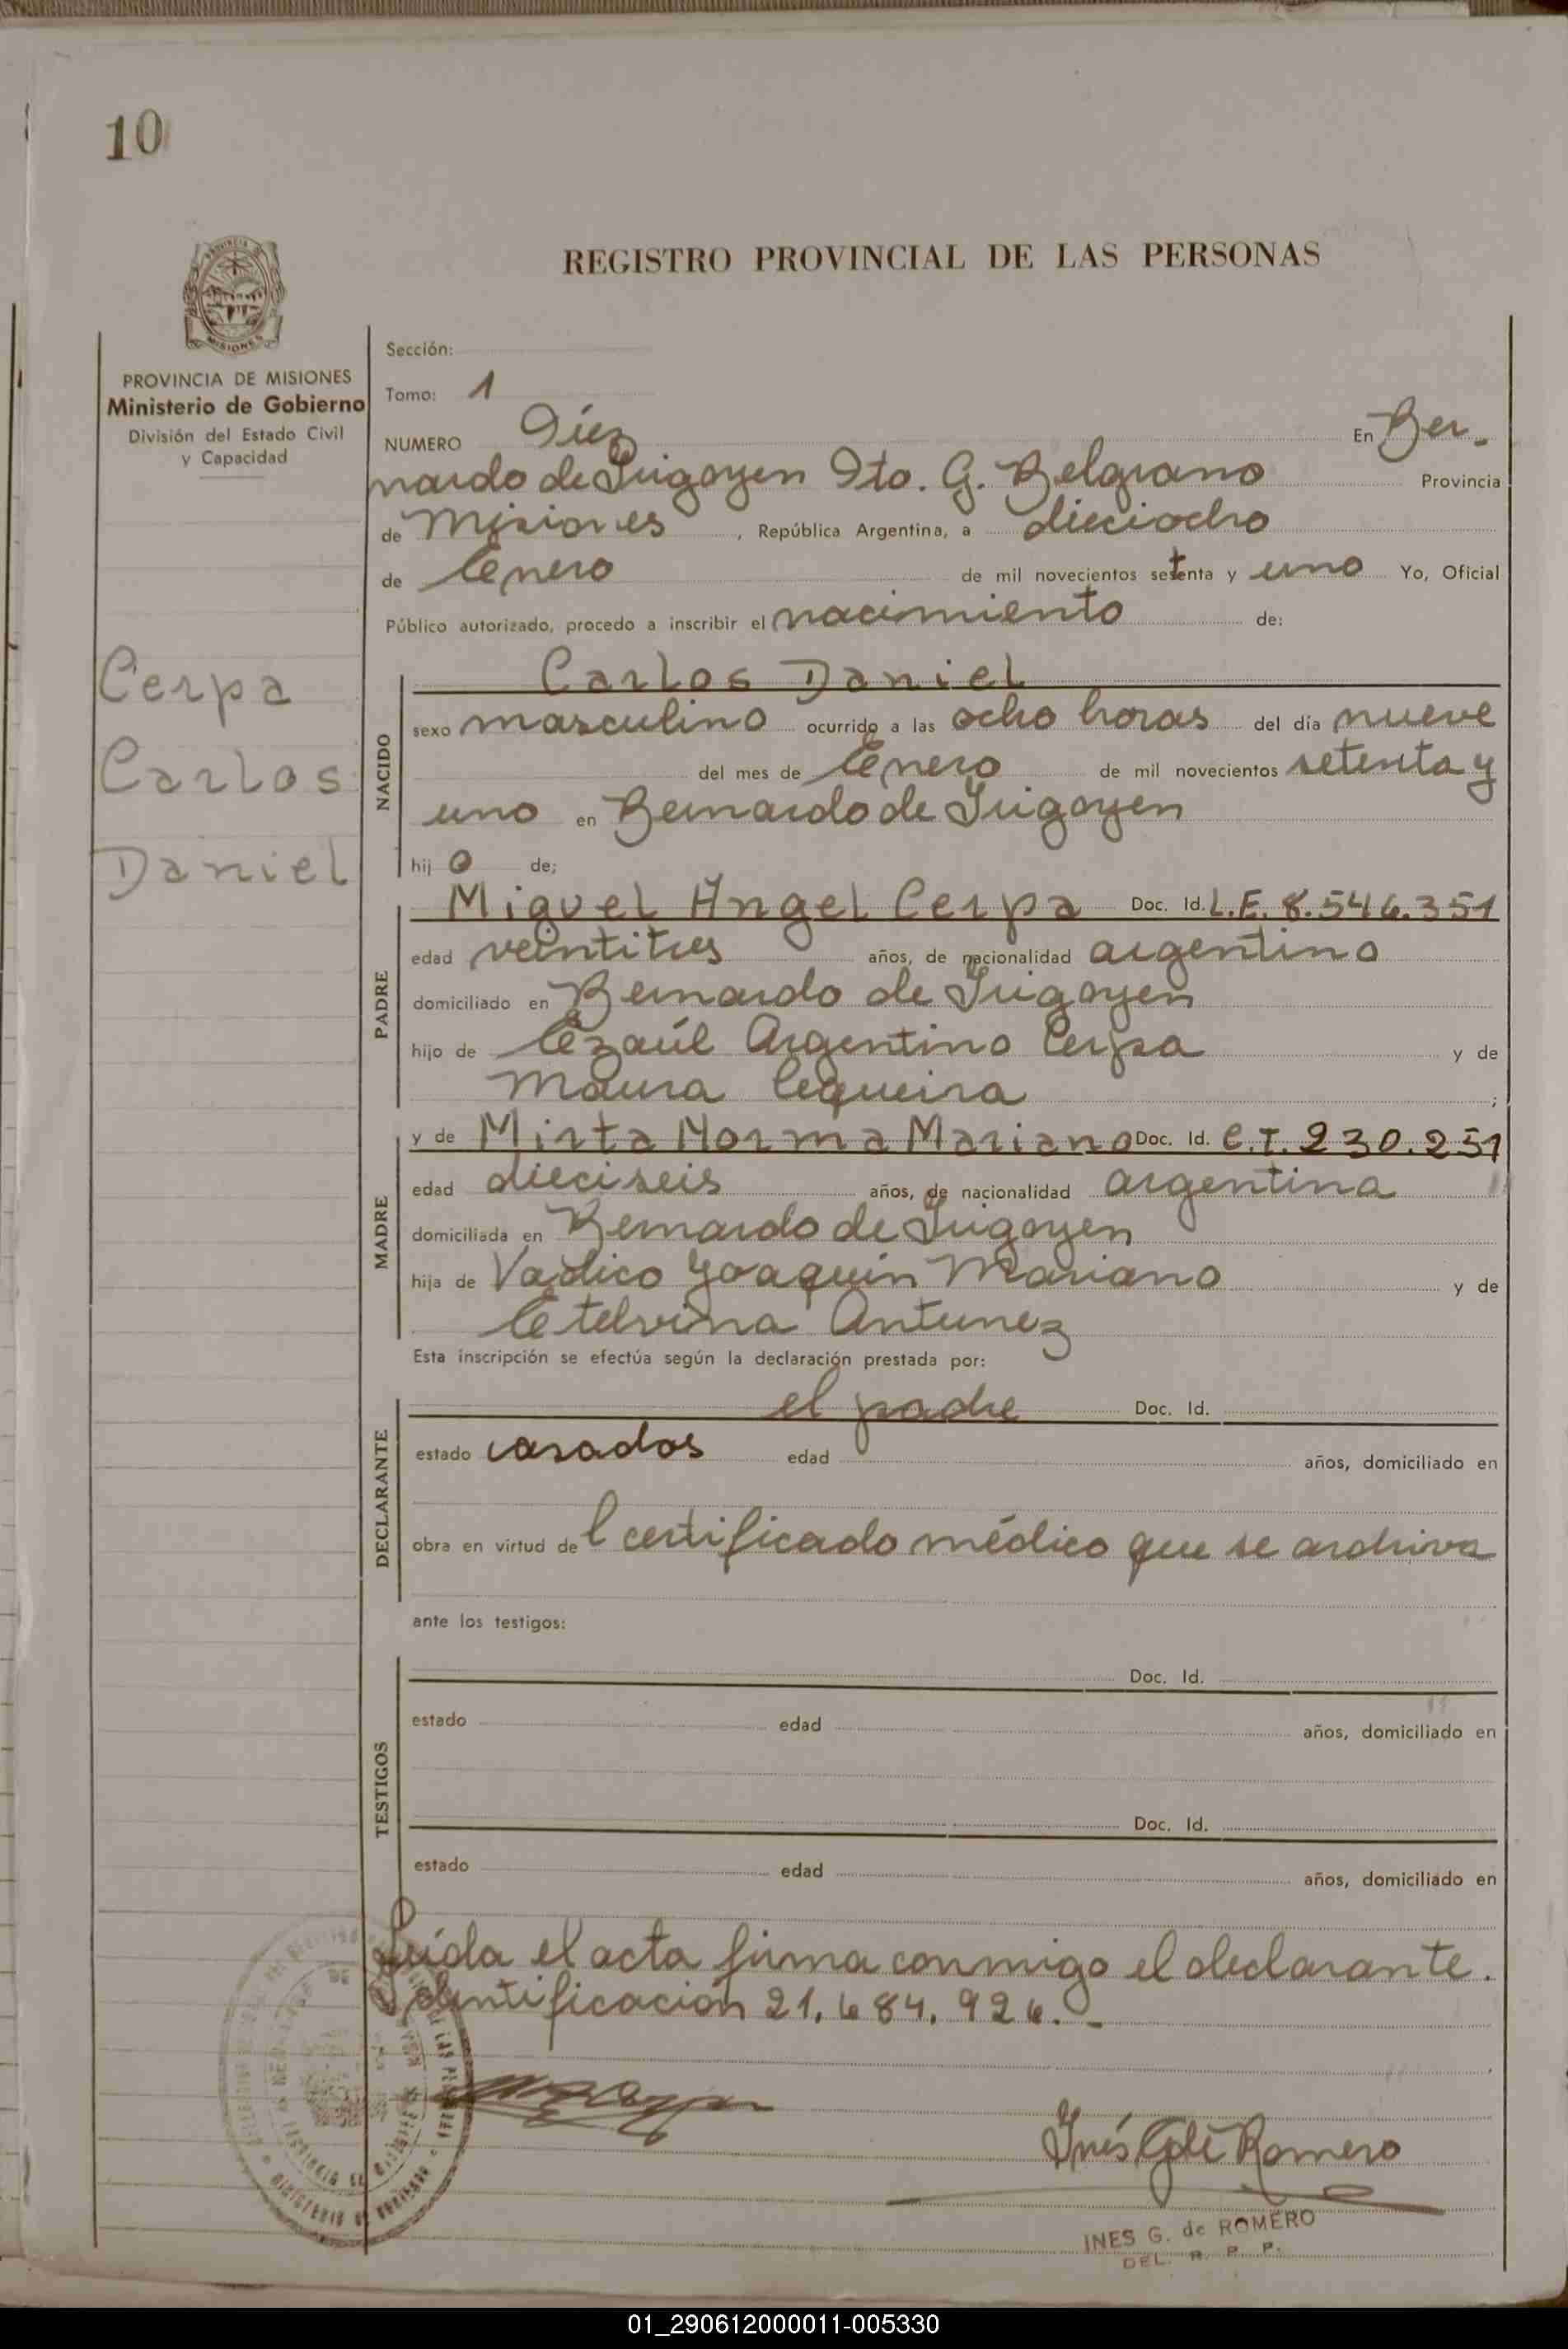 10
PROVINCIA DE
MISIONES
REGISTRO PROVINCIAL DE LAS PERSONAS
PROVINCIA DE MISIONES
Ministerio de Gobierno
División del Estado Civil
y Capacidad
Cerpa
Carlos
Daniel
Sección:
Tomo: 1
NUMERO Diez En Ber-
nardo de Irigoyen Dto. G. Belgrano Provincia
de Misiones , República Argentina, a dieciocho
de Enero de mil novecientos setenta y uno Yo, Oficial
Público autorizado, procedo a inscribir el nacimiento de:
NACIDO
Carlos Daniel
sexo masculino ocurrido a las ocho horas del día nueve
del mes de Enero de mil novecientos setenta y
uno en Bernardo de Irigoyen
hij o de;
PADRE
Miguel Angel Cerpa Doc. Id. L.E. 8.546.351
edad veintitres años, de nacionalidad argentino
domiciliado en Bernardo de Irigoyen
hijo de Ezaúl Argentino Cerpa y de
Maura Cequeira ;
MADRE
y de Mirta Norma Mariano Doc. Id. C.I. 230.251
edad dieciseis años, de nacionalidad argentina
domiciliada en Bernardo de Irigoyen
hija de Vadico Joaquín Mariano y de
Etelvina Antunez
Esta inscripción se efectúa según la declaración prestada por:
DECLARANTE
el padre Doc. Id.
estado casados edad años, domiciliado en
obra en virtud de l certificado médico que se archiva
ante los testigos:
TESTIGOS
Doc. Id.
estado edad años, domiciliado en
Doc. Id.
estado edad años, domiciliado en
Leída el acta firma conmigo el declarante.
Identificación 21.684.926.-
Inés Romero
INES G. de ROMERO
DEL. R. P. P.
01_290612000011-005330